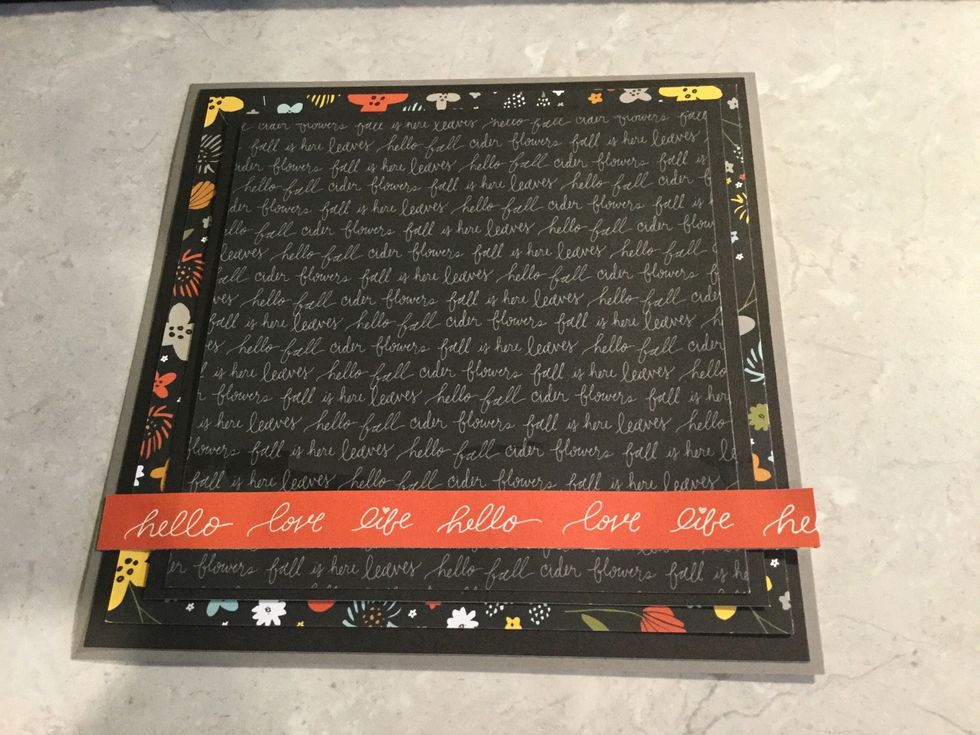 e cider flowers fall is here leaves hello fall cider flowers fall
fall is here leaves hello fall cider flowers fall is here leaves
ider flowers fall is here leaves hello fall cider flowers fall is
hello fall cider flowers fall is here leaves hello fall cider f
der flowers fall is here leaves hello fall cider flowers fall is
ello fall cider flowers fall is here leaves hello fall cider
leaves hello fall cider flowers fall is here leaves hello fall
fall cider flowers fall is here leaves hello fall cider f
ves hello fall cider flowers fall is here leaves hello fall cider
fall is here leaves hello fall cider flowers fall is here leaves h
leaves hello fall cider flowers fall is here leaves hello fall
fall is here leaves hello fall cider flowers fall is here leaves hello
r flowers fall is here leaves hello fall cider flowers fall is here
is here leaves hello fall cider flowers fall is here leaves hello
flowers fall is here leaves hello fall cider flowers fall is here l
fall is here leaves hello fall cider flowers fall is here leaves
hello love life hello love life he
er flowers fall is here leaves hello fall cider flowers fall is he